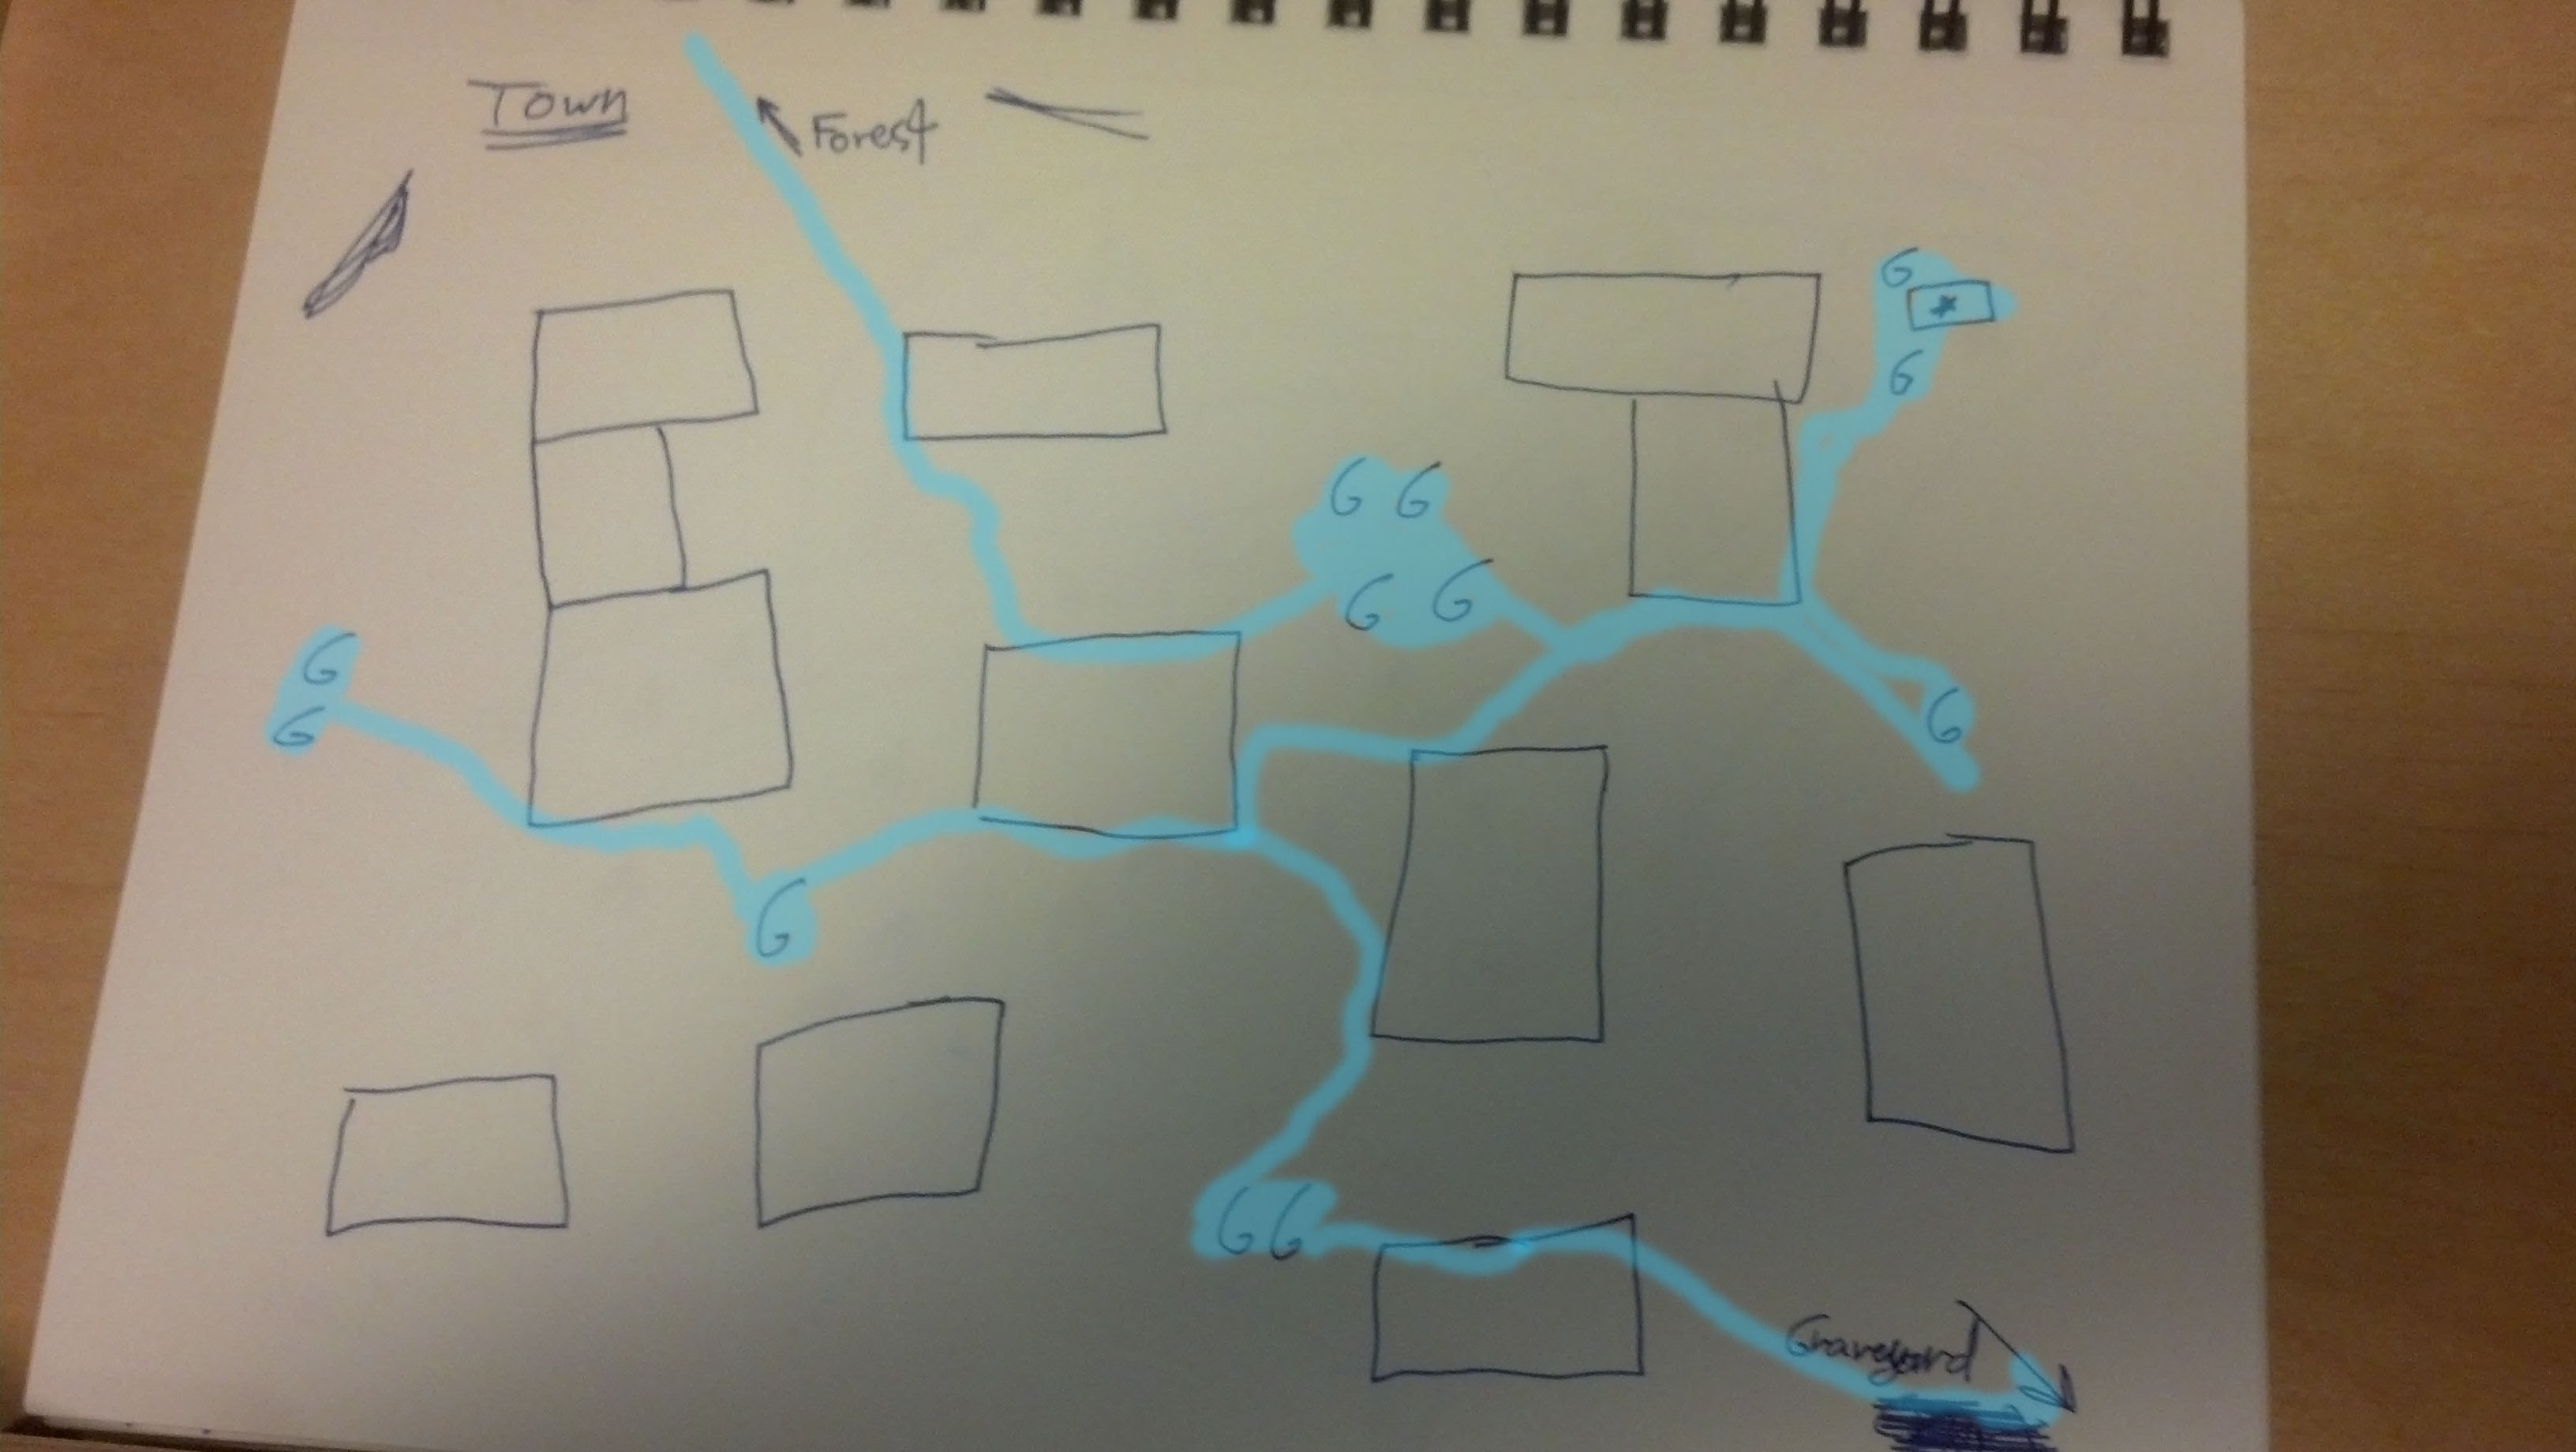 Town
Forest
G
*
G
G G
G G
G
G
G
G
G G
Graveyard